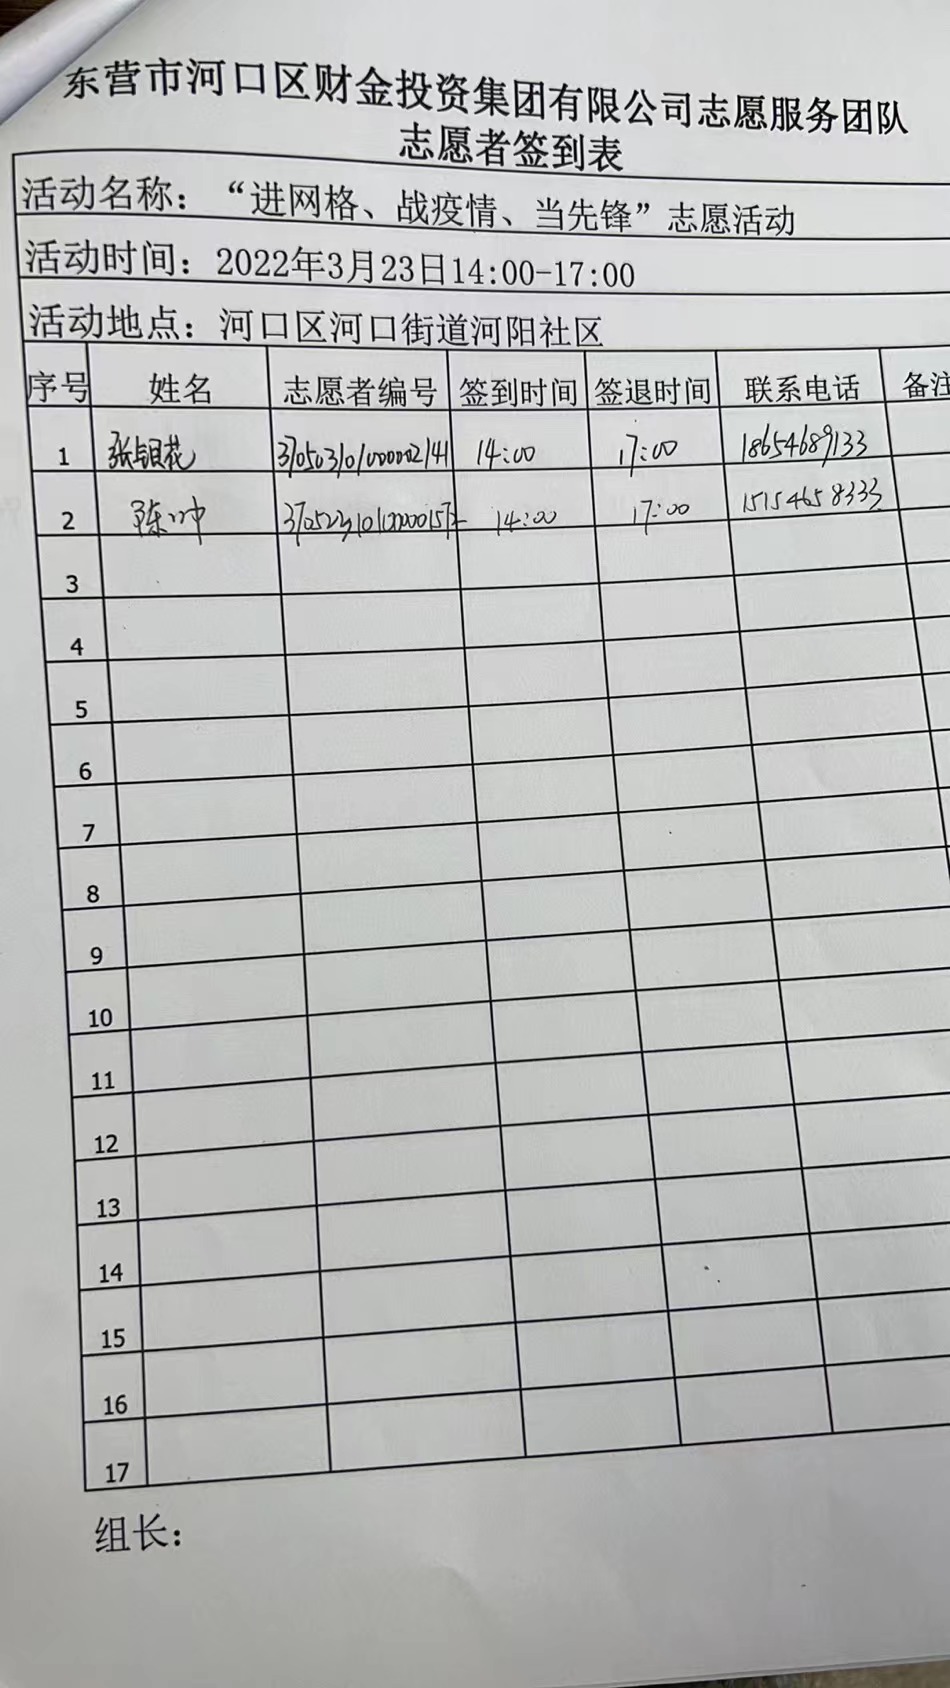 东营市河口区财金投资集团有限公司志愿服务团队
志愿者签到表
活动名称：“进网格、战疫情、当先锋”志愿活动
活动时间：2022年3月23日14:00-17:00
活动地点：河口区河口街道河阳社区
序号 姓名 志愿者编号 签到时间 签退时间 联系电话 备注
1 张银花 370503101000002141 14:00 17:00 18654689133
2 陈 14:00 17:00 15154658333
3
4
5
6
7
8
9
10
11
12
13
14
15
16
17
组长：